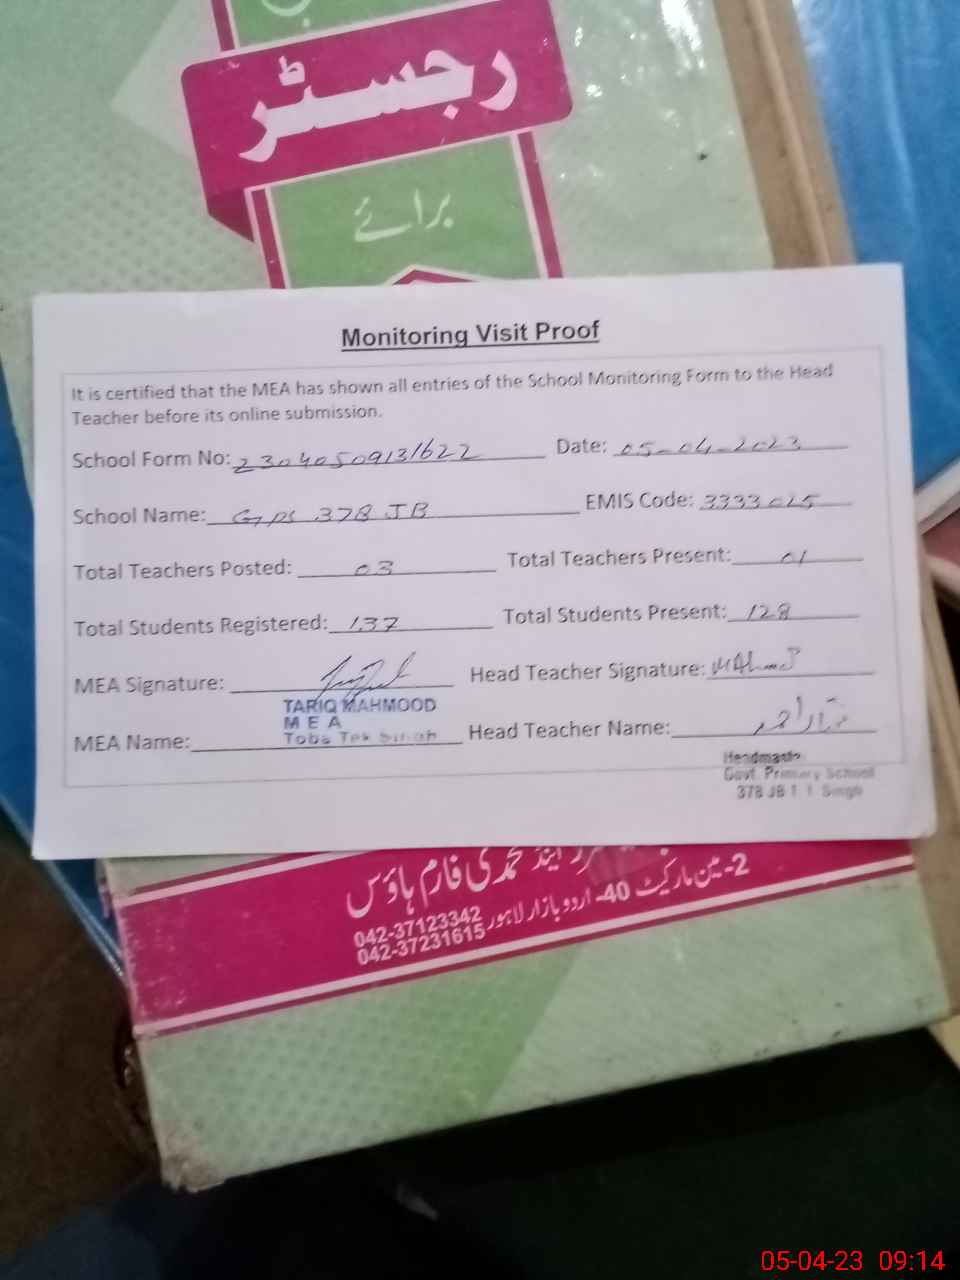 رجسٹر
برائے
Monitoring Visit Proof
It is certified that the MEA has shown all entries of the School Monitoring Form to the Head
Teacher before its online submission.
School Form No: 23040509131622 Date: 05-04-2023
School Name: GPS 378 JB EMIS Code: 3333025
Total Teachers Posted: 03 Total Teachers Present: 01
Total Students Registered: 137 Total Students Present: 128
MEA Signature: Head Teacher Signature: MAhmad
TARIQ MAHMOOD
M E A
Toba Tek Singh
MEA Name: Head Teacher Name: مختار احمد
Headmaste
Govt. Primary School
378 JB T. T. Singh
اینڈ محمدی فارم ہاؤس
2-مین مارکیٹ 40- اردو بازار لاہور
042-37123342
042-37231615
05-04-23 09:14